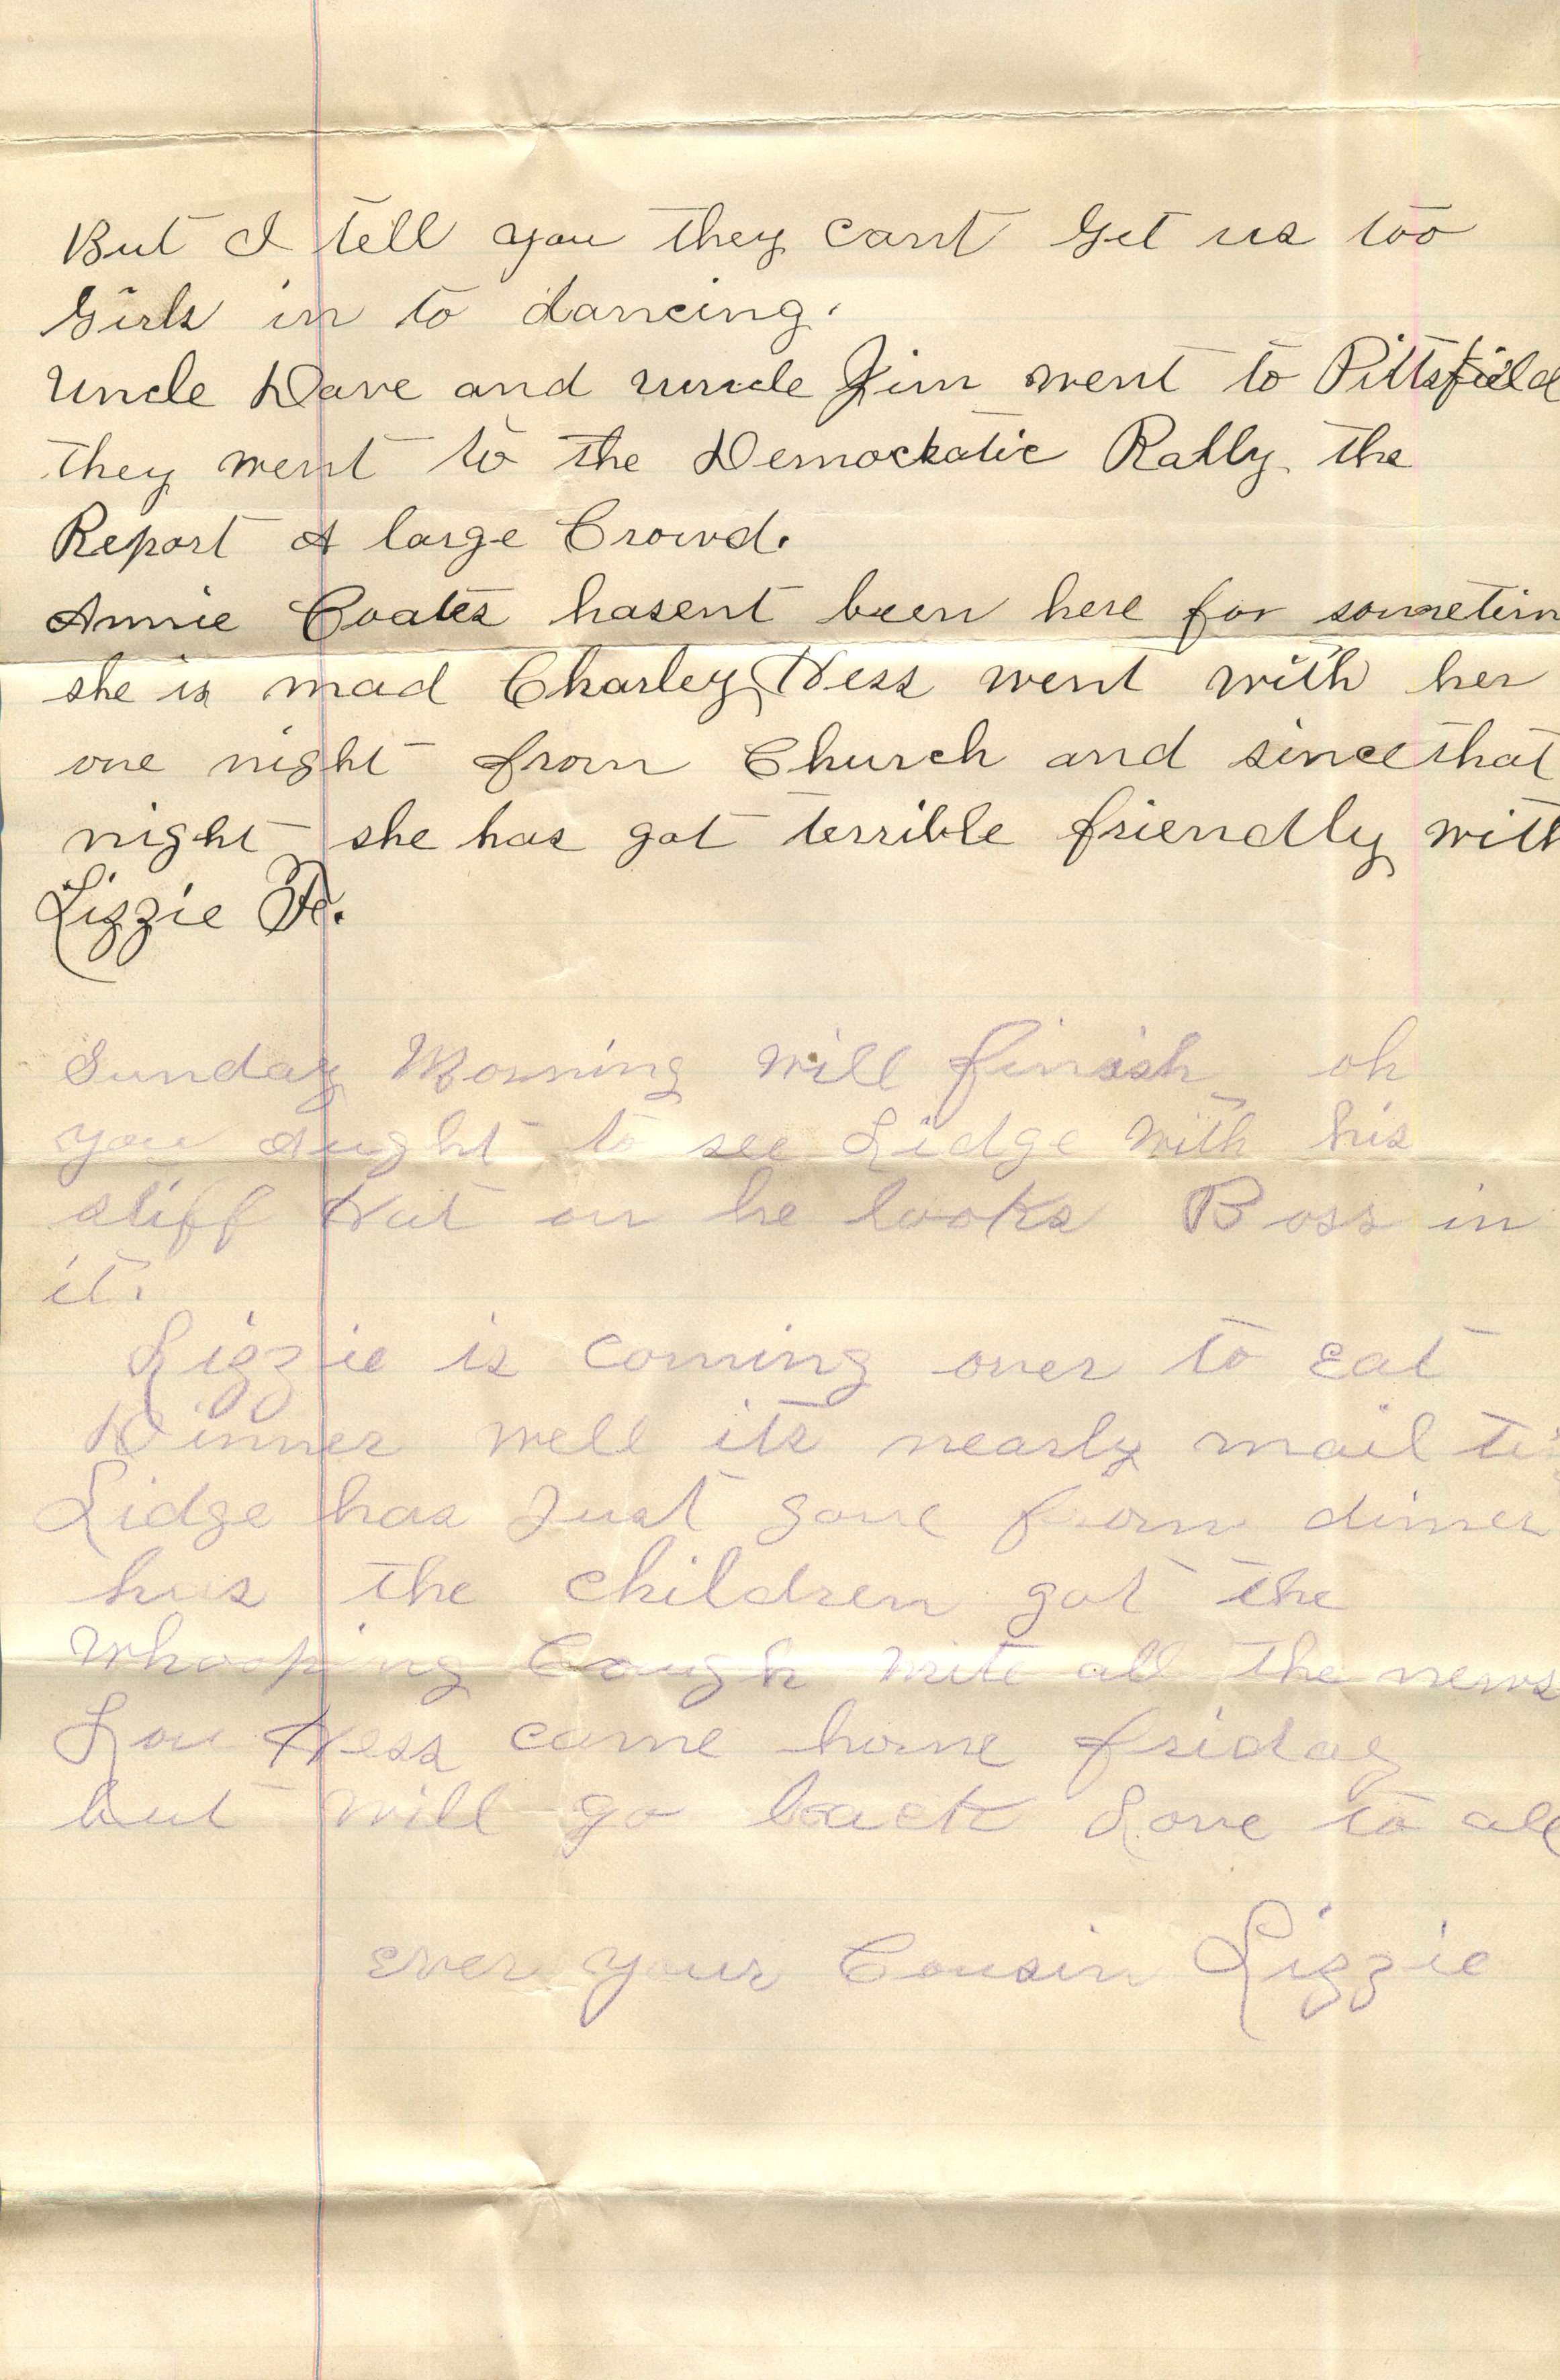 But I tell you they cant Get us too
Girls in to dancing.
Uncle Dave and uncle Jim went to Pittsfield
they went to the Demockatic Rally the
Report A large Crowd.
Annie Coates hasent been here for sometim
she is mad Charley Hess went with her
one night from Church and since that
night she has got terrible friendly with
Lizzie
Sunday Morning will finish oh
you aught to see Lidge with his
stiff Hat on he looks Boss in
it.
Lizzie is coming over to eat
Dinner well its nearly mail ti
Lidge has Just gone from dinner
has the children got the
Whooping Cough write all the news
Lou Hess came home friday
but will go back Love to all
ever your Cousin Lizzie